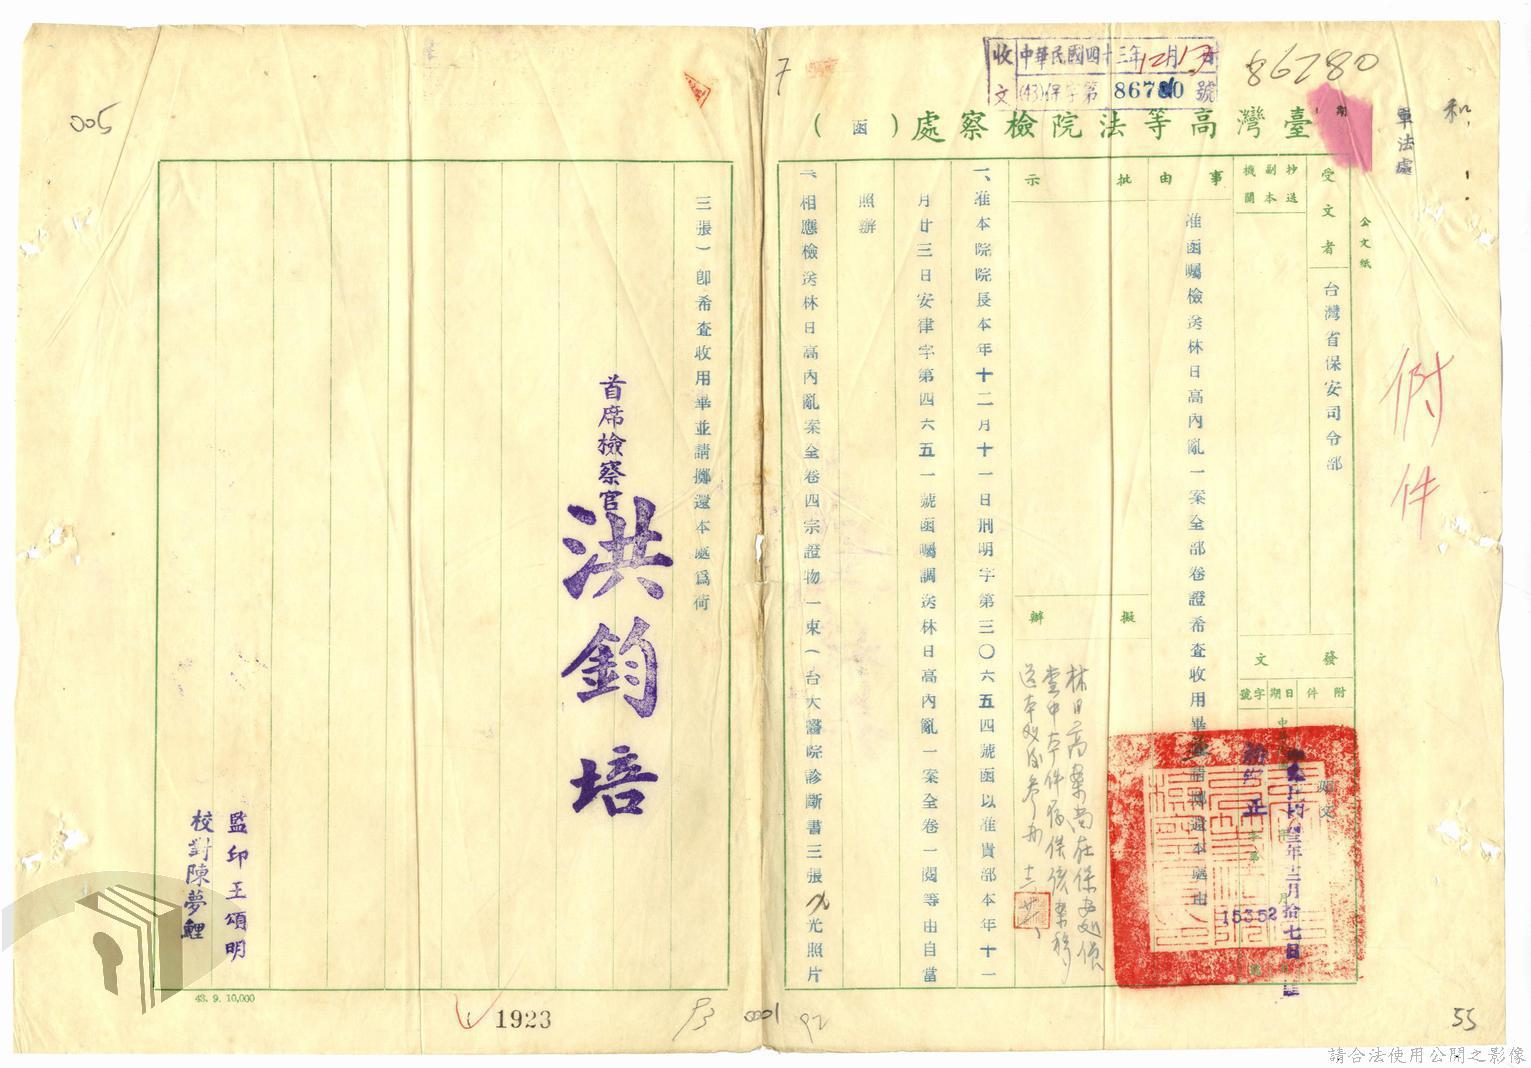 收 中華民國四十三年12月17日
文 (43)保字第 86780 號
86780
臺灣高等法院檢察處(函)
軍法處
和
公文紙
附件
受文者
台灣省保安司令部
抄送
副本
機關
發文
附件
日期
字號
如文
中華民國四十三年十二月拾七日
15352
事由
准函囑檢送林日高內亂一案全部卷證希查收用畢並請擲還本處由
批示
擬辦
林日高案尚在保安處偵
送本處參辦
一、准本院院長本年十二月十一日刑明字第三〇六五四號函以准貴部本年十一
月廿三日安律字第四六五一號函囑調送林日高內亂一案全卷一閱等由自當
照辦
二、相應檢送林日高內亂案全卷四宗證物一束(台大醫院診斷書三張X光照片
三張)即希查收用畢並請擲還本處為荷
首席檢察官 洪鈞培
監印王頌明
校對陳夢鯉
43. 9. 10,000
1923
93
0001
92
55
005
7
請合法使用公開之影像